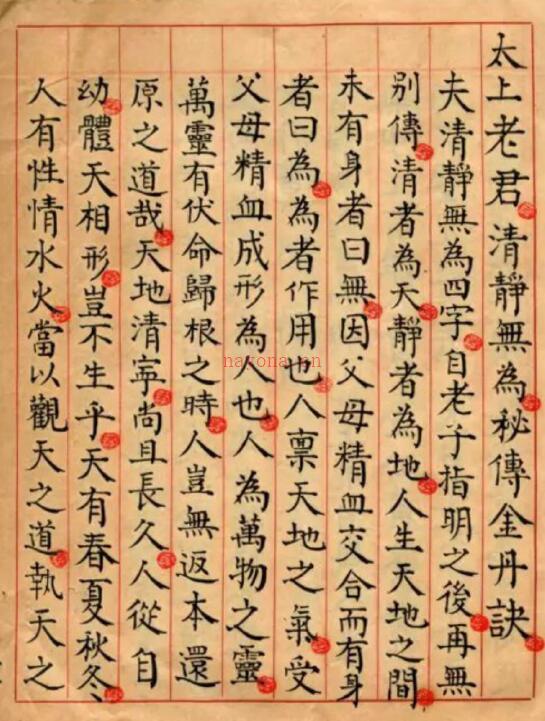 太上老君清靜無為秘傳金丹訣
夫清靜無為四字自老子指明之後再無
別傳清者為天靜者為地人生天地之間
未有身者曰無因父母精血交合而有身
者曰為為者作用也人禀天地之氣受
父母精血成形為人也人為萬物之靈
萬靈有伏命歸根之時人豈無返本還
原之道哉天地清寧尚且長久人從自
幼體天相形豈不生乎天有春夏秋冬、
人有性情水火當以觀天之道執天之
nayona.cn